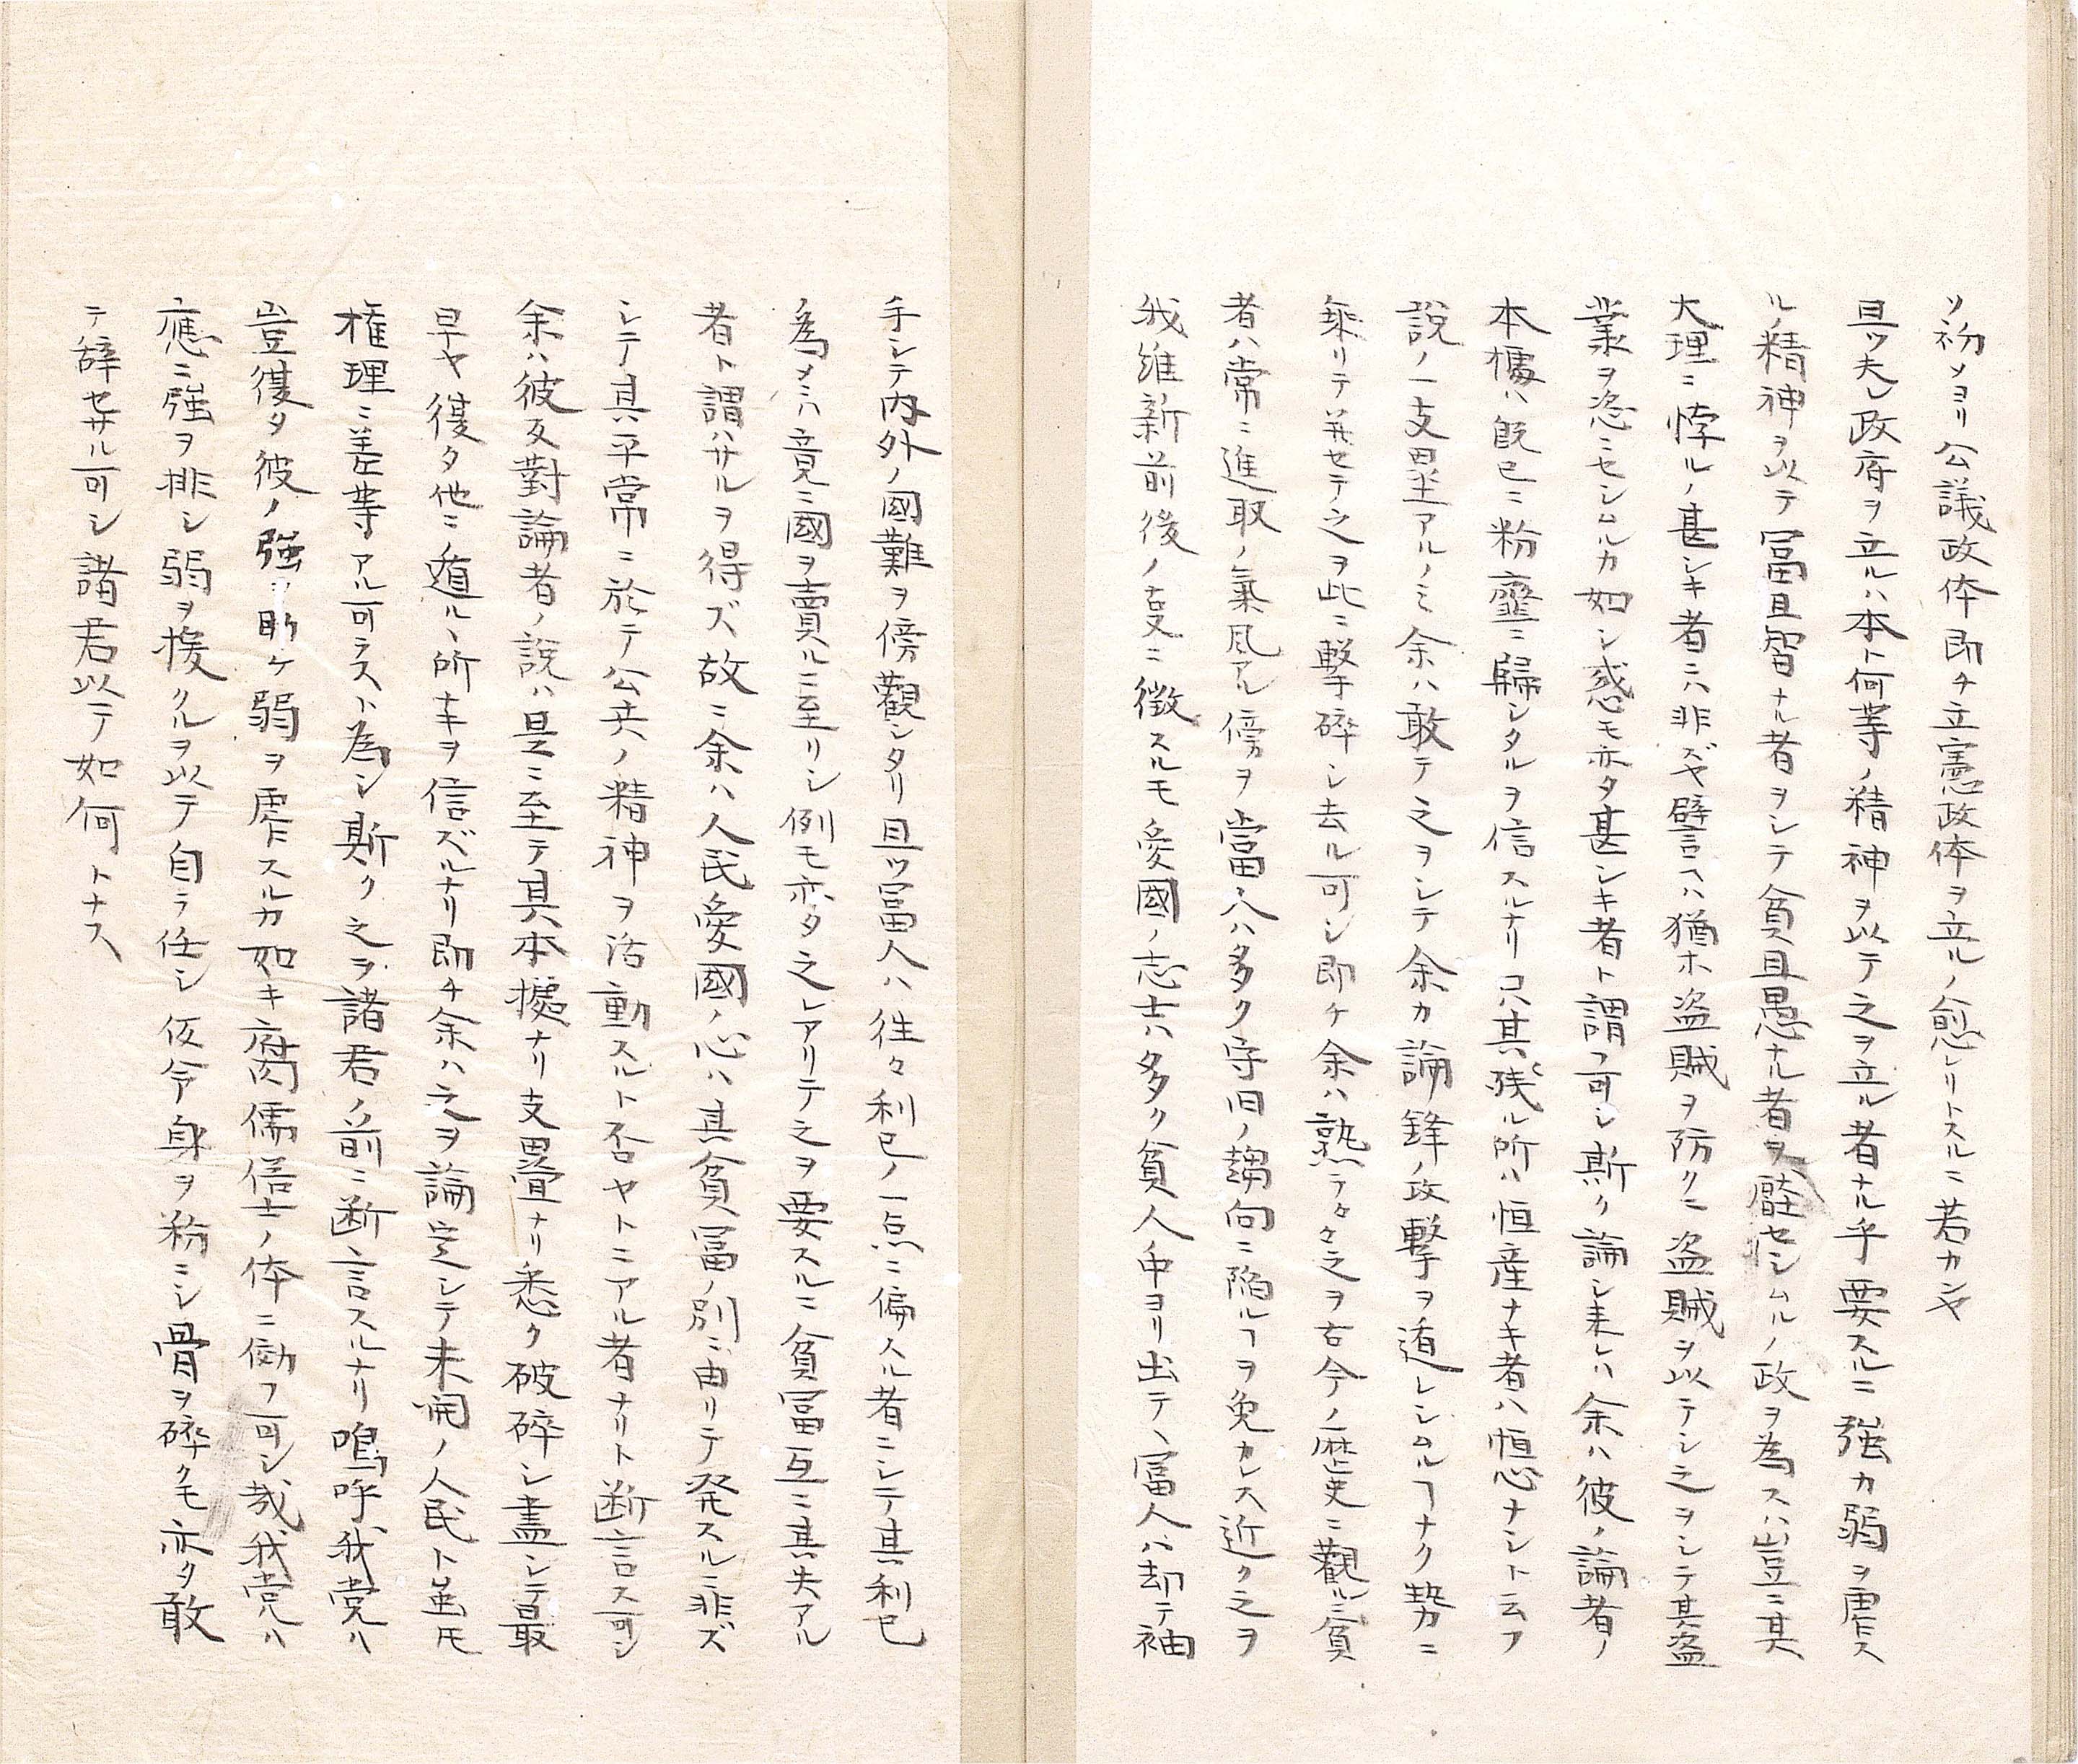 ソ初ソヨリ公議政体即チ立憲政体ヲ立ルノ愈レリトスルニ若カンヤ
且ツ夫レ政府ヲ立ルハ本ト何等ノ精神ヲ以テ之ヲ立ル者ナル乎要スルニ強カ弱ヲ虐ス
ルノ精神ヲ以テ冨且智ナル者ヲシテ貧且愚ナル者ヲ壓セシムルノ政ヲ為スハ豈ニ其
大理ニ悖ルノ甚シキ者ニハ非ズヤ譬ヘハ猶ホ盗賊ヲ防クニ盗賊ヲ以テシ之ヲシテ其盗
業ヲ恣ニセシムルカ如シ惑モ亦タ甚シキ者ト謂フ可シ斯ク論シ来レハ余ハ彼ノ論者ノ
本據ハ既已ニ粉韲ニ歸シタルヲ信スルナリ只其残ル所ハ恒産ナキ者ハ恒心ナシト云フ
説ノ一支塁アルノミ余ハ敢テ之ヲシテ余カ論鋒ノ攻撃ヲ遁レシムルヿナク勢ニ
乗リテ并セテ之ヲ此ニ撃碎シ去ル可シ即チ余ハ熟テ々之ヲ古今ノ歴史ニ觀ルニ貧
者ハ常ニ進取ノ氣風アル傍ヲ富人ハ多ク守旧ノ趨向ニ陥ルヿヲ免カレス近ク之ヲ
我維新前後ノ支ニ徴スルモ愛國ノ志士ハ多ク貧人ノ中ヨリ出テヽ冨人ハ却テ袖
手シテ内外ノ國難ヲ傍觀シタリ且ツ冨人ハ往々利己ノ一点ニ偏スル者ニシテ其利己
為メニハ竟ニ國ヲ賣ルニ至リシ例モ亦タ之レアリテ之ヲ要スルニ貧冨互ニ其失アル
者ト謂ハサルヲ得ズ故ニ余ハ人民愛國ノ心ハ其貧冨ノ別ニ由リテ発スルニ非ズ
シテ其平常ニ於テ公共ノ精神ヲ活動スルト否ヤトニアル者ナリト断言ス可シ
余ハ彼反對論者ノ説ハ是ニ至テ其本據ナリ支畳ナリ悉ク破碎シ盡シテ最
早ヤ復タ他ニ遁ルヽ所ナキヲ信ズルナリ即チ余ハ之ヲ論定シテ未開ノ人民ト虽モ
権理ニ差等アル可ラスト為シ斯ク之ヲ諸君ノ前ニ断言スルナリ嗚呼我党ハ
豈復タ彼ノ強ヲ助ケ弱ヲ虐スルカ如キ腐儒信士ノ体ニ傚フ可シ哉我党ハ
應ニ強ヲ排シ弱ヲ援クルヲ以テ自ラ任シ仮令身ヲ粉ニシ骨ヲ碎クモ亦タ敢
テ辞セサル可シ諸君以テ如何トナス